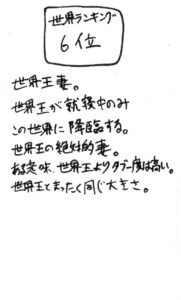 世界ランキング
6位
世界王妻。
世界王が就寝中のみ
この世界に降臨する。
世界王の絶対的妻。
ある意味、世界王よりタブー度は高い。
世界王とまったく同じ大きさ。